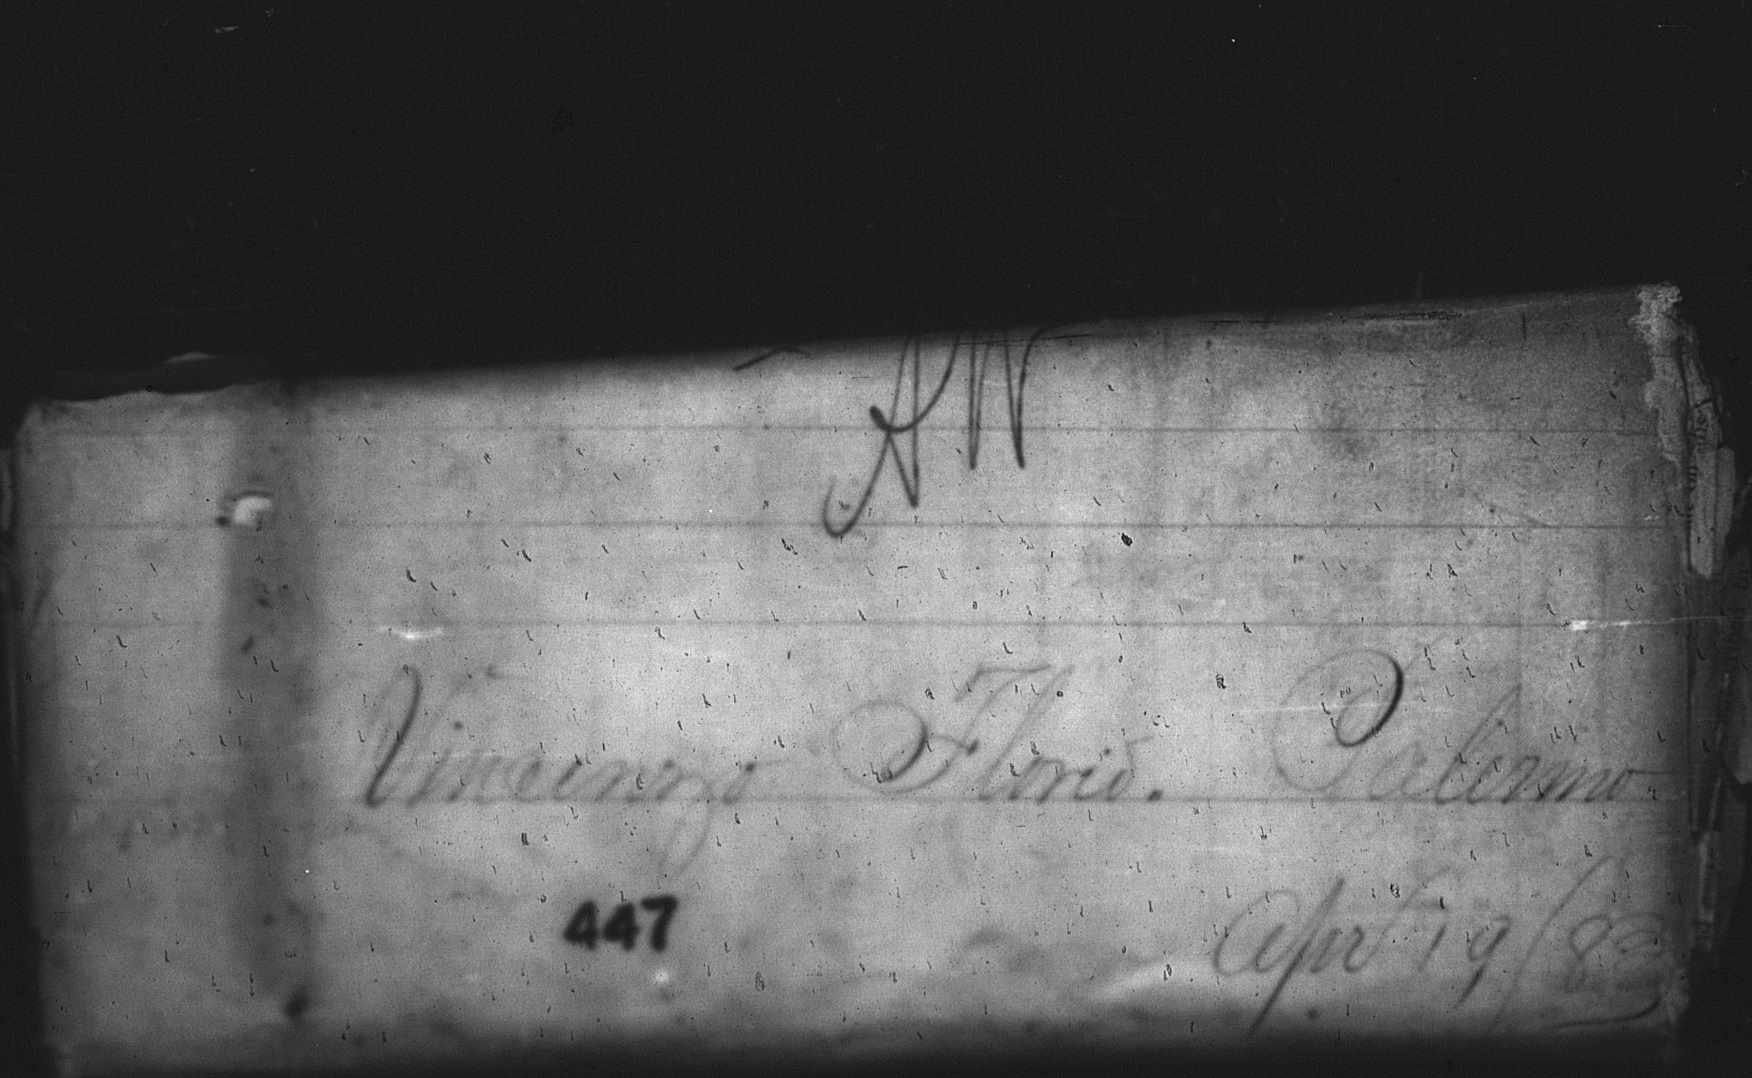 Vincenzo Florio. Palermo
447
Apr 19/83